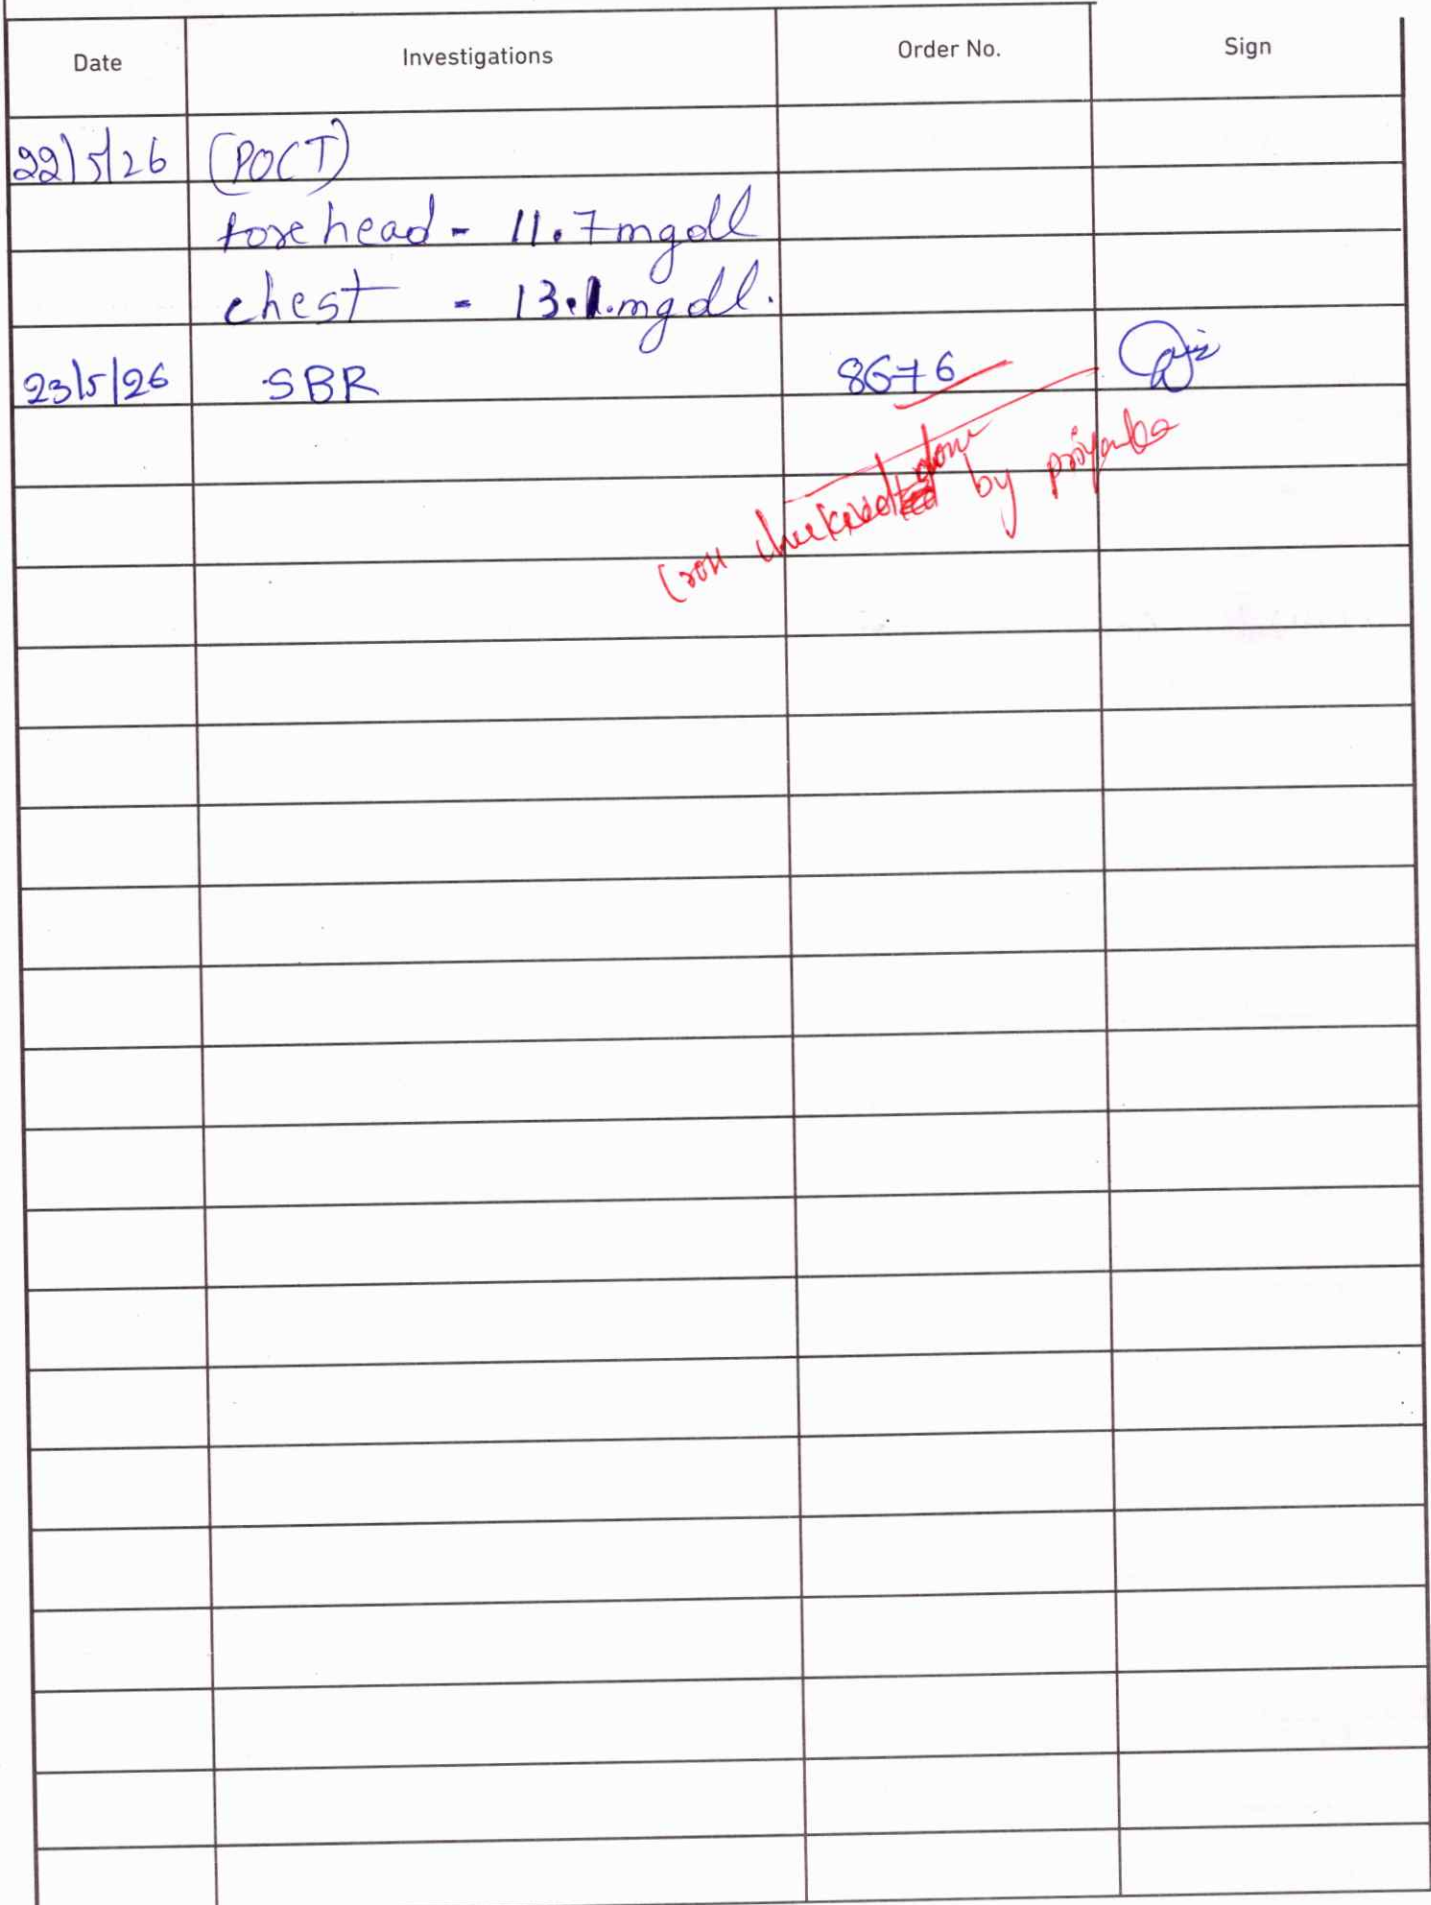 Date Investigations Order No. Sign
22/5/26 (POCT)
forehead - 11.7mgdll
chest - 13.1.mgdll.
23/5/26 SBR 8676
done
by priyanka